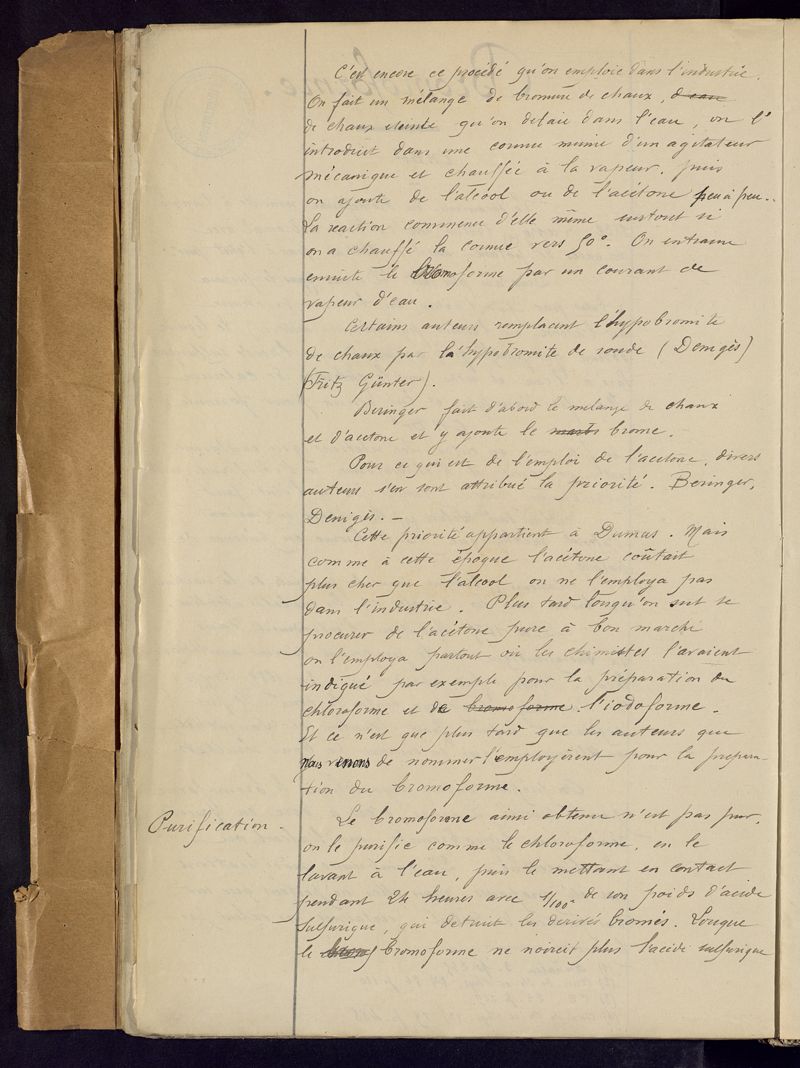 C'est encore ce procédé qu'on emploie dans l'industrie.
On fait un mélange de bromure de chaux, d'eau
de chaux éteinte qu'on délaie dans l'eau, on l'
introduit dans une cornue munie d'un agitateur
mécanique et chauffée à la vapeur. puis
on ajoute de l'alcool ou de l'acétone peu à peu..
La réaction commence d'elle même surtout si
on a chauffé la cornue vers 50°. On entraine
ensuite le bromoforme par un courant de
vapeur d'eau.
Certains auteurs remplacent l'hypobromite
de chaux par la'hypobromite de soude (Denigès)
(Fritz Günter).
Beringer fait d'abord le mélange de chaux
et d'acetone et y ajoute le brome.
Pour ce qui est de l'emploi de l'acetone, divers
auteurs s'en sont attribué la priorité. Beringer,
Denigès. —
Cette priorité appartient à Dumas. Mais
comme à cette époque l'acétone coûtait
plus cher que l'alcool on ne l'employa pas
dans l'industrie. Plus tard lorsqu'on sut se
procurer de l'acétone pure à bon marché
on l'employa partout où les chimistes l'avaient
indiqué par exemple pour la préparation du
chloroforme et de bromoforme. l'iodoforme.
Et ce n'est que plus tard que les auteurs que
nous venons de nommer l'employèrent pour la prépara-
tion du bromoforme.
Purification.
Le bromoforme ainsi obtenu n'est pas pur.
on le purifie comme le chloroforme, en le
lavant à l'eau, puis le mettant en contact
pendant 24 heures avec 1/100 de son poids d'acide
sulfurique, qui détruit les dérivés bromés. Lorsque
le bromoforme ne noircit plus l'acide sulfurique